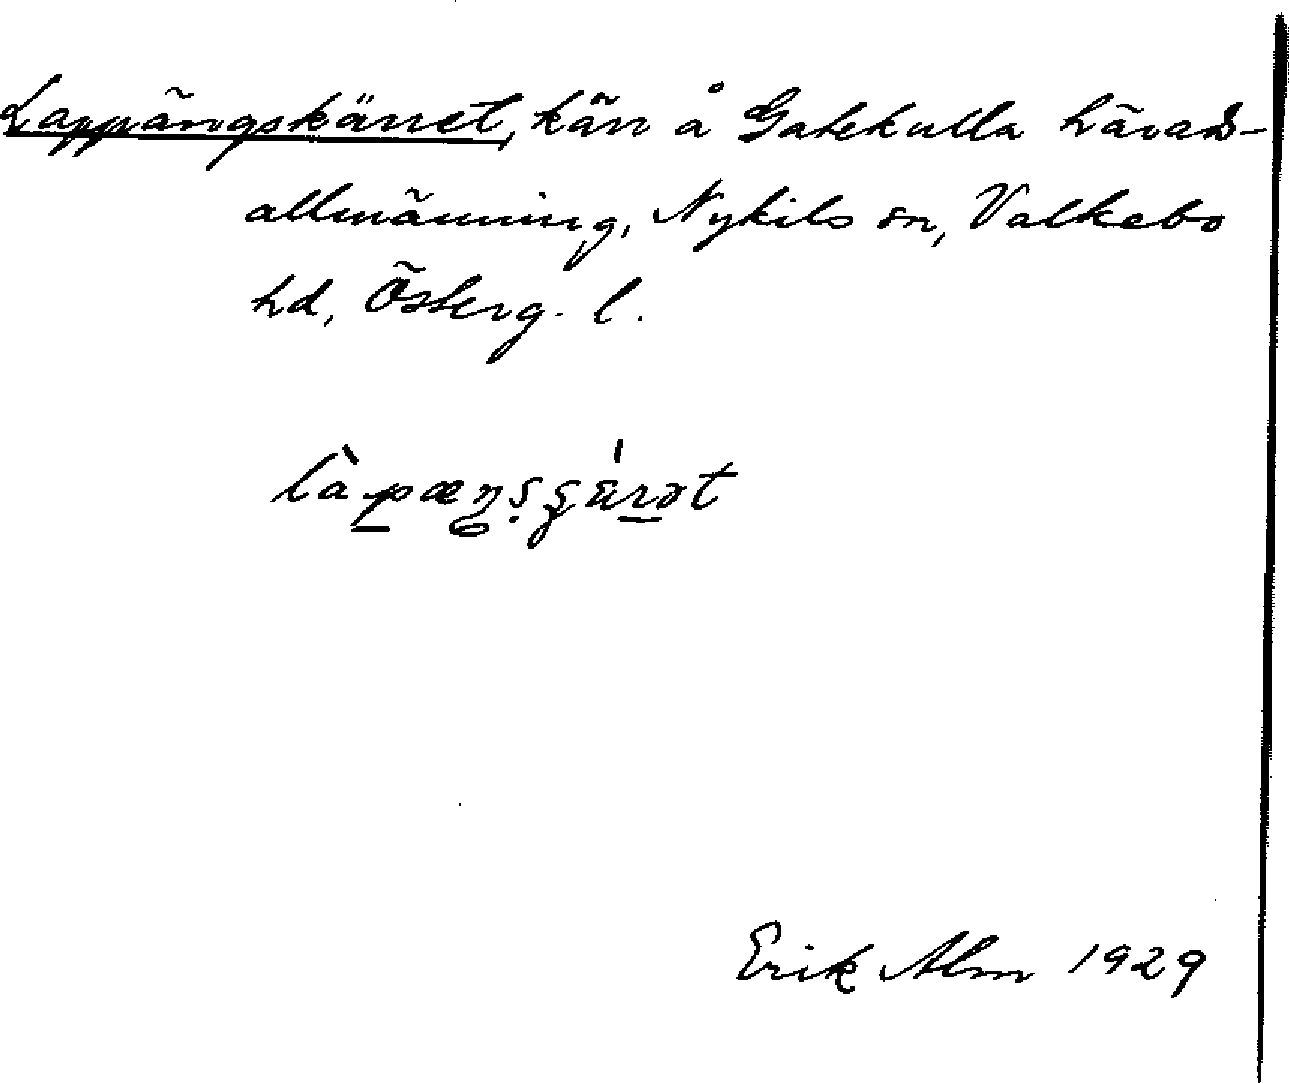 Lappängskärret, kärr å Gatekulla härads-
allmänning, Nykils sn, Valkebo
hd, Österg. l.
Erik Alm 1929